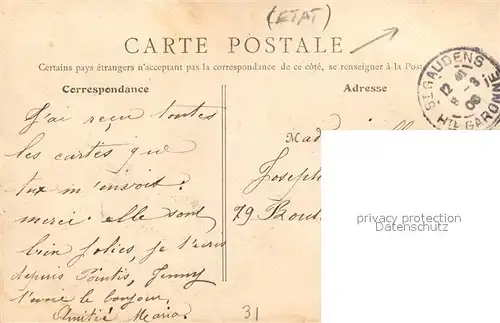 (ETAT)
CARTE POSTALE
Certains pays étrangers n'acceptant pas la correspondance de ce côté, se renseigner à la Post
Correspondance
Adresse
ST GAUDENS
12
8 - 3
06
HTE GARONNE
J'ai reçu toutes
les cartes que
tux m'invoit:
merci elle sont
bien jolies, je t'écris
depuis Pointis, Jenny
t'envoie le bonjour,
Amitié Maria.
Mad
Joseph
79 Rout
31
privacy protection
Datenschutz